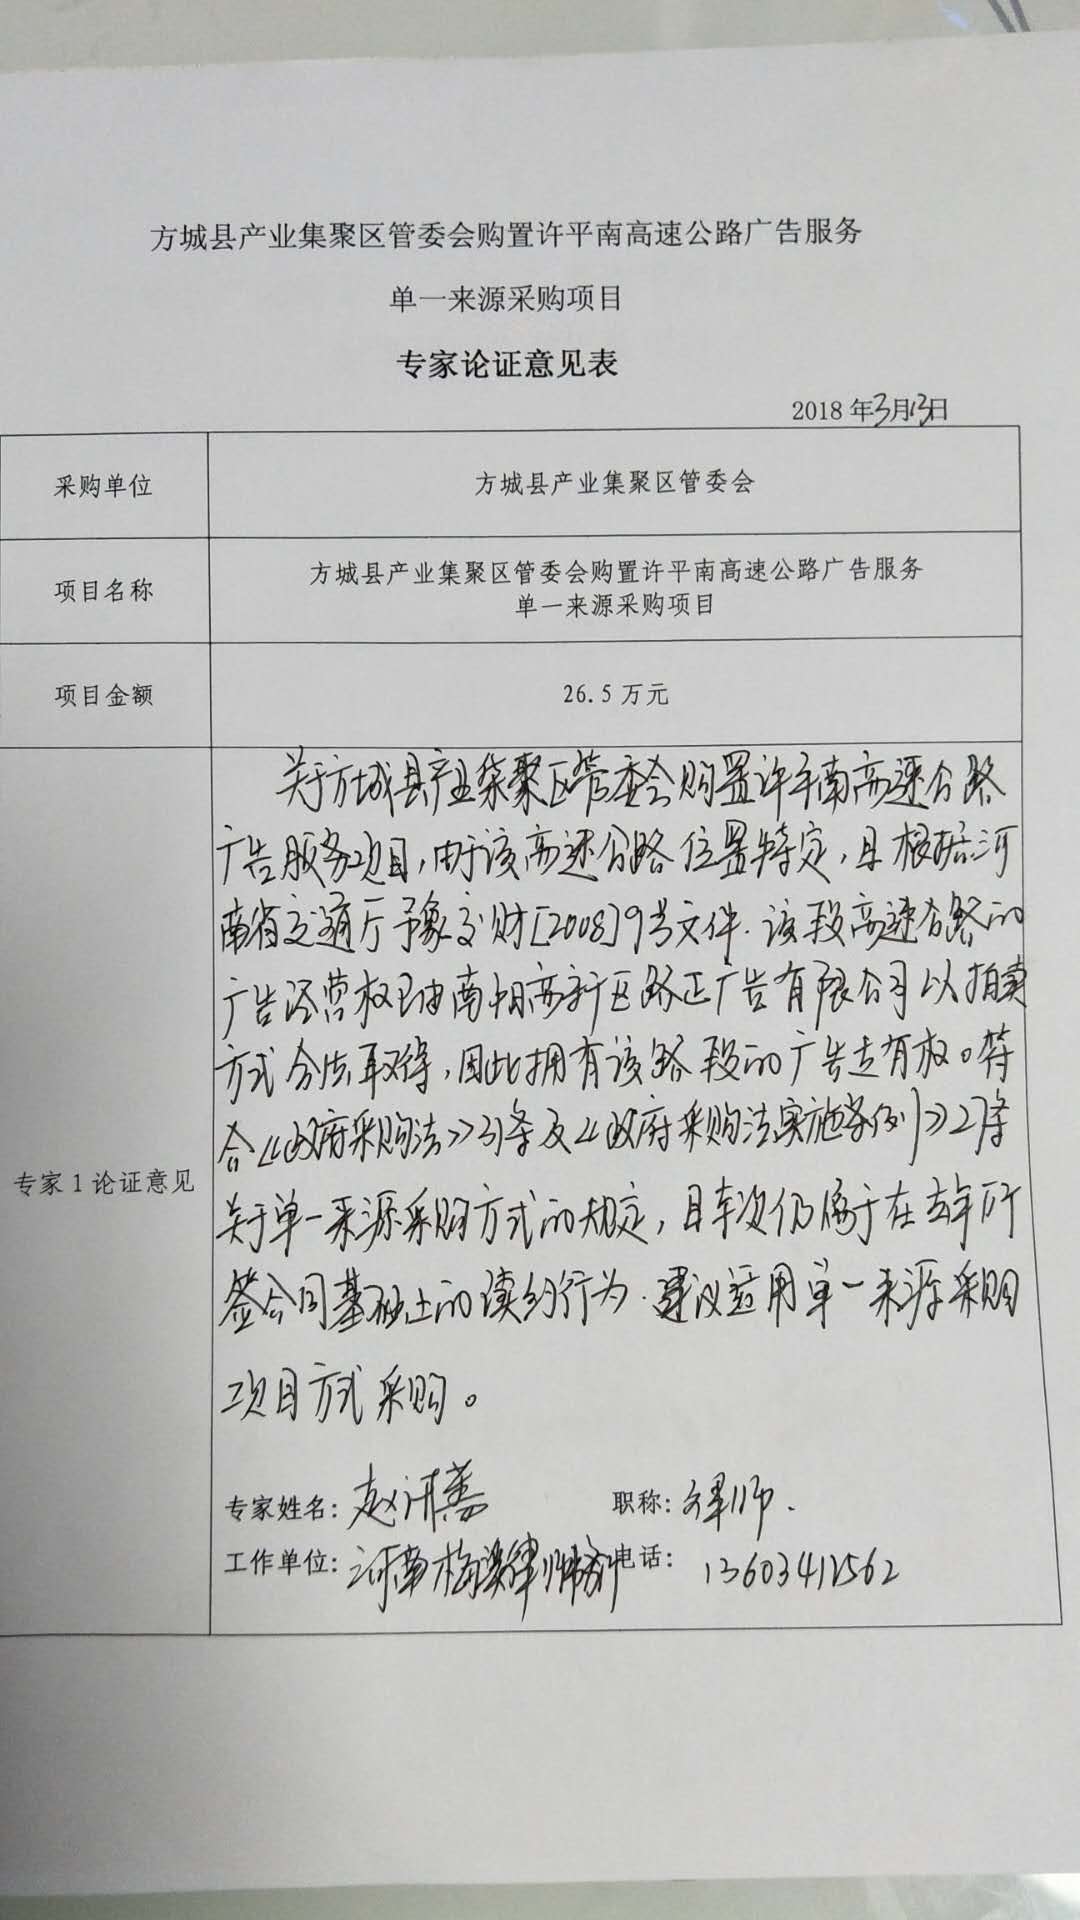 方城县产业集聚区管委会购置许平南高速公路广告服务
单一来源采购项目
专家论证意见表
2018年3月13日
采购单位
方城县产业集聚区管委会
项目名称
方城县产业集聚区管委会购置许平南高速公路广告服务
单一来源采购项目
项目金额
26.5万元
专家1论证意见
关于方城县产业集聚区管委会购置许平南高速公路
广告服务项目,由于该高速公路位置特定,且根据河
南省交通厅豫交财[2008]9号文件.该段高速公路的
广告经营权已由南阳高新区路正广告有限公司以拍卖
方式合法取得,因此拥有该路段的广告专有权。符
合《政府采购法》31条及《政府采购法实施条例》27条
关于单一来源采购方式的规定,且本次仍属于在去年所
签合同基础上的续约行为.建议适用单一来源采购
项目方式采购。
专家姓名:赵 职称:律师.
工作单位:河南梅溪律师所 电话:13603412562